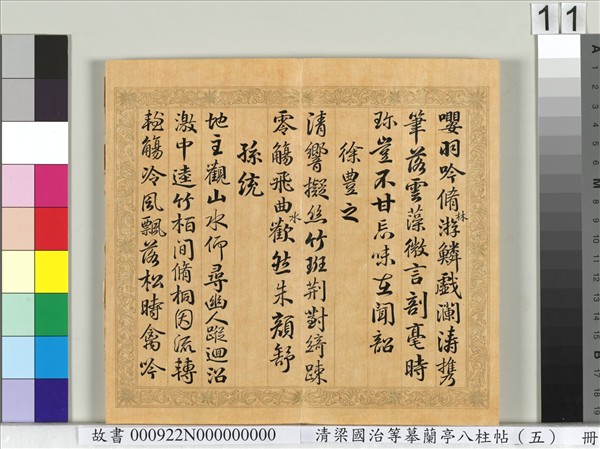 嚶羽吟脩林游鱗戲瀾濤攜
筆落雲藻微言剖毫時
珎豈不甘忘味在聞韶
徐豐之
清響擬絲竹班荊對綺疎
零觴飛曲水歡然朱顏舒
孫統
地主觀山水仰尋幽人蹤迴沼
激中逵竹栢間脩桐因流轉
輕觴冷風飄落松時禽吟
11
故書 000922N000000000 清梁國治等摹蘭亭八柱帖（五） 冊